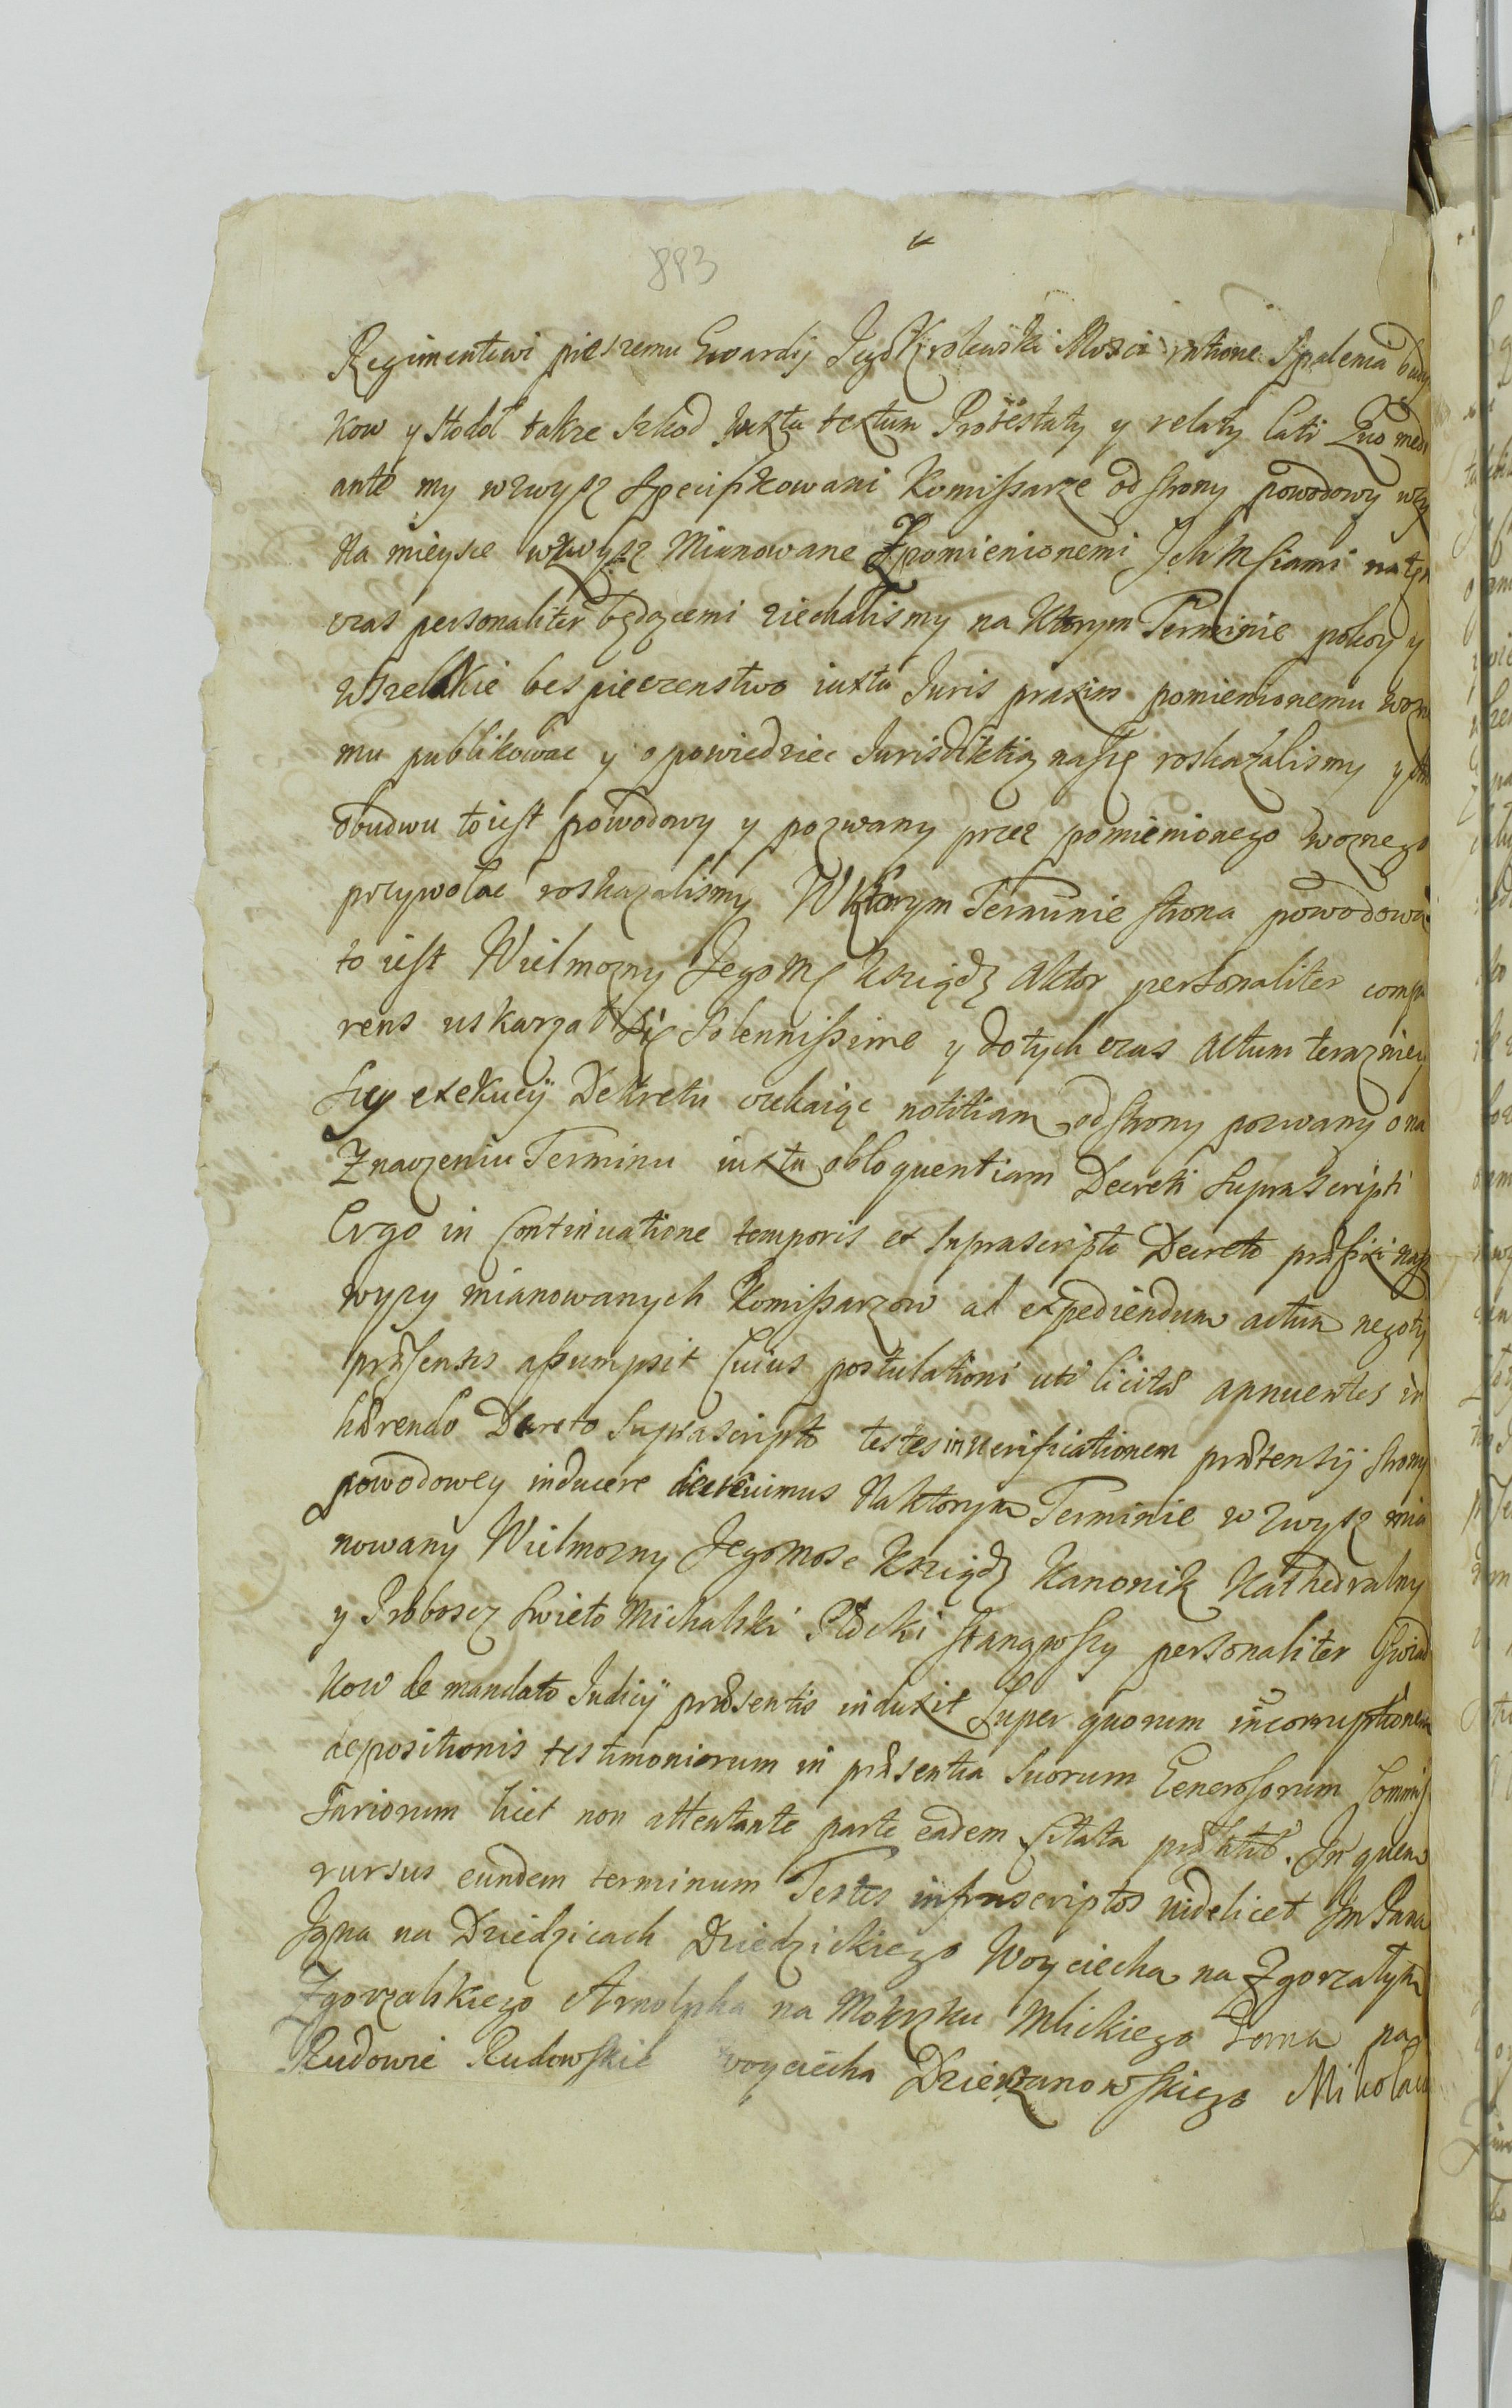 883
Regimentowi pieszemu Gwardij Jego Krolewski Mosci ratione Spalenia budy
kow y stodol takze szkod juxta textum Protestaty y relaty lati Quo medi
ante my wzwysz specifikowani Komissarze od strony powodowy
Na mieysce wzwysz Mianowane Zpomienionemi Ich Msciami na ten
czas personaliter będącemi ziechalismy na Ktorym Terminie pokoy y
wszelakie bespieczenstwo iuxta Juris praxim pomienionemu wozne
mu publikowac y opowiedziec Jurisdiktią naszę roskazalismy y
obudwu to iest powodowy y pozwany przez pomienionego woznego
przywolac roskazalismy W Ktorym Terminie strona powodowa
to iest Wielmozny Jego Mc Ksiądz Aktor personaliter compa
rens uskarzał się Solennissime y do tych czas Actum terazniey
szey exekucij Dekretu czekaiąc notitiam od strony pozwany o na
Znaczeniu Terminu iuxta obloquentiam Decreti suprascripti
Ergo in Continuatione temporis ex suprascripto Decreto præfixi nas
wyzy mianowanych Komissarzow ad expediendum actum negotij
præsentis assumpsit Cuius postulationi uti licitæ annuentes in
hærendo Decreto Suprascripto testes in verificationem prætensij strony
powodowey inducere decreuimus Na ktorym Terminie wzwysz mia
nowany Wielmozny Jegomosc Ksiądz Kanonik Kathedralny
y Proboscz Swieto Michalski Płocki stanąwszy personaliter Swiad
kow de mandato Judicij præsentis induxit Super quorum incorruptionem
depositionis testimoniorum in præsentia Suorum Generosorum Commis
sariorum licet non attentante parte eadem Citata Jn quem
rursus eundem terminum Testes infrascriptos uidelicet Jm Pana
Jana na Dziedzicach Dziedzickiego Woyciecha na Zgorzałym
Zgorzalskiego Arnolpha na Mokrzku Mlickiego na
Rudowie Rudowskie woyciecha Dzierzanowskiego Mikolaia